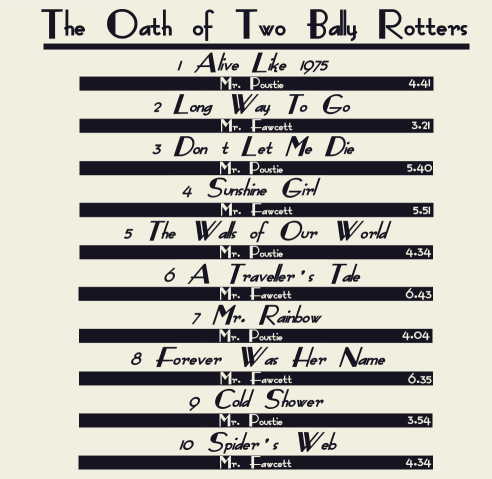 The Oath of Two Bally Rotters
1 Alive Like 1975
Mr. Poustie 4.41
2 Long Way To Go
Mr. Fawcett 3.21
3 Don t Let Me Die
Mr. Poustie 5.40
4 Sunshine Girl
Mr. Fawcett 5.51
5 The Walls of Our World
Mr. Poustie 4.34
6 A Traveller's Tale
Mr. Fawcett 6.43
7 Mr. Rainbow
Mr. Poustie 4.04
8 Forever Was Her Name
Mr. Fawcett 6.35
9 Cold Shower
Mr. Poustie 3.54
10 Spider's Web
Mr. Fawcett 4.34